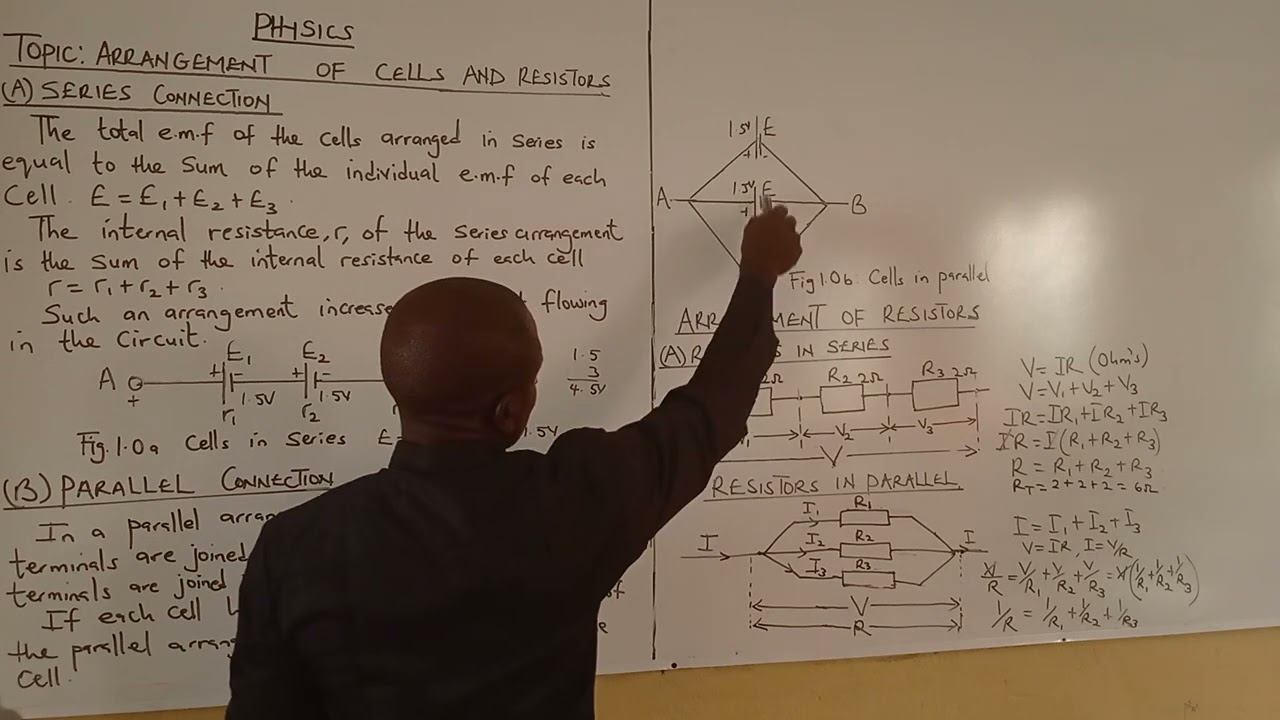 PHYSICS
TOPIC: ARRANGEMENT OF CELLS AND RESISTORS
(A) SERIES CONNECTION
The total e.m.f of the cells arranged in series is
equal to the sum of the individual e.m.f of each
cell. E = E₁ + E₂ + E₃.
The internal resistance, r, of the series arrangement
is the sum of the internal resistance of each cell
r = r₁ + r₂ + r₃.
Such an arrangement flowing
in the circuit.
A + E₁ E₂
+ - + -
r₁ 1.5V r₂ 1.5V
1.5
3
4.5V
Fig. 1.0a Cells in Series E= 1.5V
(B) PARALLEL CONNECTION
In a parallel
terminals are joined
terminals are joined
If each cell
the parallel
cell.
1.5V E
+ -
A 1.5V E B
+
Fig 1.0b: Cells in parallel
OF RESISTORS
(A) IN SERIES
2Ω R₂ 2Ω R₃ 2Ω
V₂ V₃
V
V = IR (Ohm's)
V = V₁ + V₂ + V₃
IR = IR₁ + IR₂ + IR₃
IR = I(R₁ + R₂ + R₃)
R = R₁ + R₂ + R₃
R_T = 2 + 2 + 2 = 6Ω
RESISTORS IN PARALLEL
I I₁ R₁
I₂ R₂ I
I₃ R₃
V
R
I = I₁ + I₂ + I₃
V = IR, I = V/R
V/R = V/R₁ + V/R₂ + V/R₃ = V(1/R₁ + 1/R₂ + 1/R₃)
1/R = 1/R₁ + 1/R₂ + 1/R₃